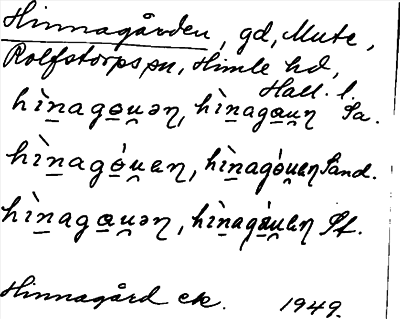 Hinnagården, gd, Mute,
Rolfstorps sn, Himle hd,
Hall. l.
hìn̲ago̲u̯ən, hìn̲aga̲u̯n Sa.
hìn̲agó̲u̯en, hìn̲agó̲u̯en Sand.
hìn̲aga̲u̯ən, hìn̲agá̲u̯en St.
Hinnagård ek. 1949.